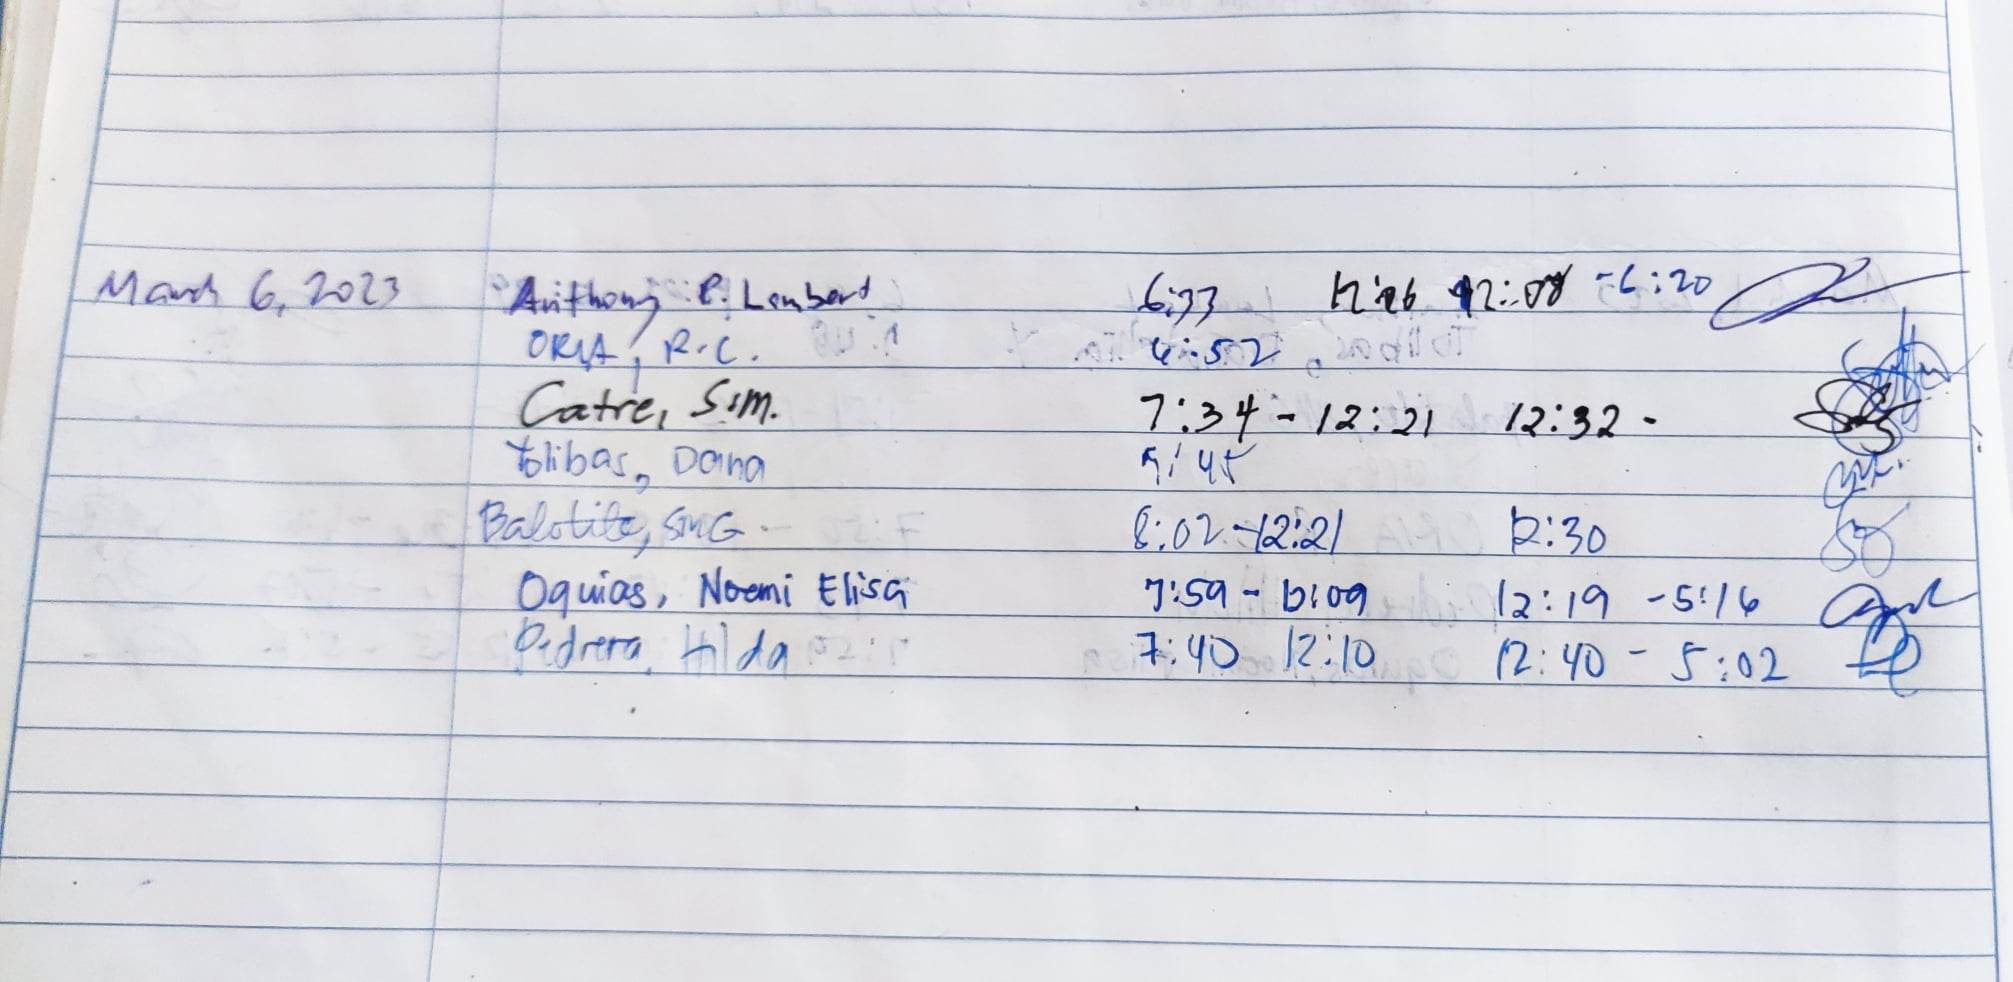 March 6, 2023 Anthony P. Lambert 6:33 12:08 -6:20
ORIA, R.C. 6:52
Catre, S.M. 7:34 - 12:21 12:32 -
Tolibas, Dana 9:45
Balotite, SMG 8:02 -12:21 12:30
Oquias, Noemi Elisa 7:59 - 12:09 12:19 -5:16
Pedrera, Hilda 7:40 12:10 12:40 - 5:02